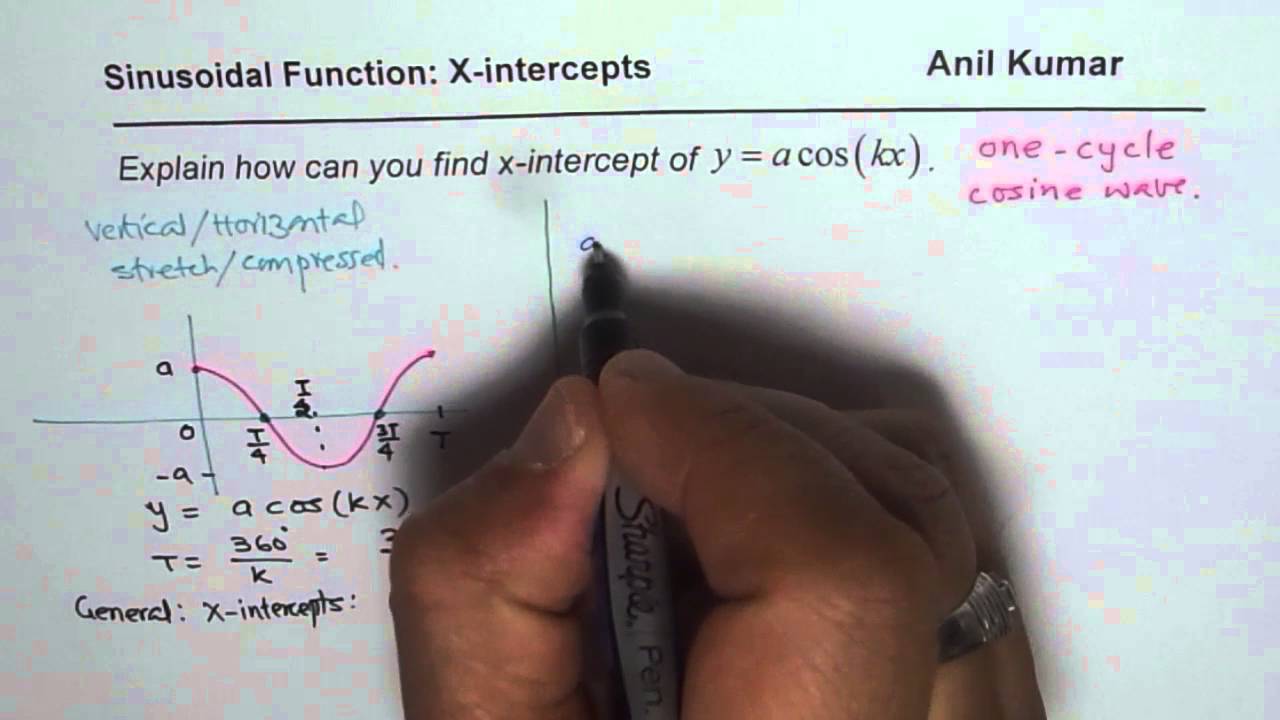 Sinusoidal Function: X-intercepts
Anil Kumar
Explain how can you find x-intercept of y = a cos(kx).
one-cycle
cosine wave.
vertical/Horizontal
stretch/compressed.
a
a
T/2
0
T/4
3T/4
T
-a
y = a cos(kx)
T = 360°/k =
General: X-intercepts:
Sharpie. Pen.